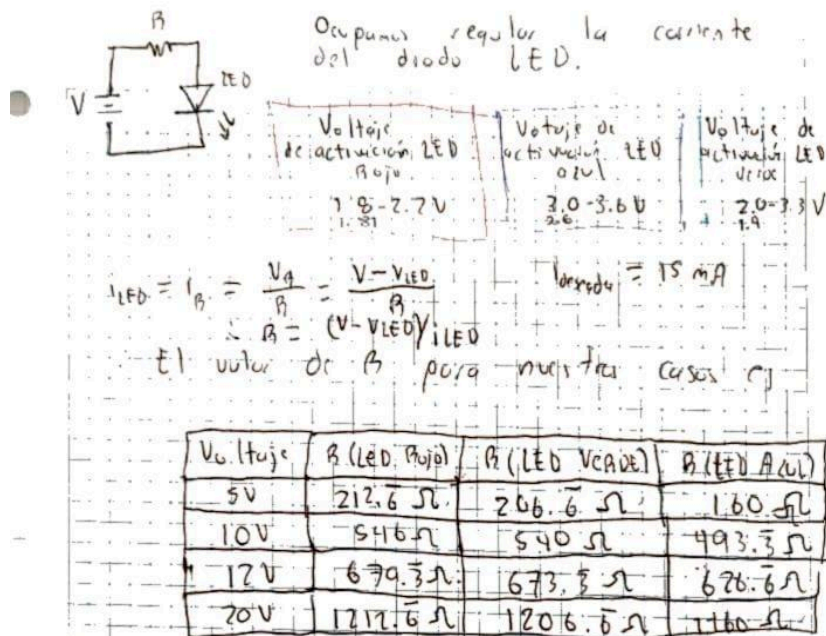 R
Ocupamos regular la corriente
del diodo LED.
LED
V
Voltaje
de activación LED
Rojo
1.8-2.2 V
1.81
Votaje de
activación LED
azul
3.0-3.6 V
2.6
Voltaje de
activación LED
verde
2.0-3.3 V
1.9
iLED = iR = VR/R = (V - VLED)/R
Ideseada = 15 mA
∴ R = (V - VLED)/iLED
El valor de R para nuestros casos es
Voltaje R (LED Rojo) R (LED VERDE) R (LED AZUL)
5V 212.6̅ Ω 206.6̅ Ω 160 Ω
10V 546 Ω 540 Ω 493.3̅ Ω
12V 679.3̅ Ω 673.3̅ Ω 626.6̅ Ω
20V 1212.6̅ Ω 1206.6̅ Ω 1160 Ω